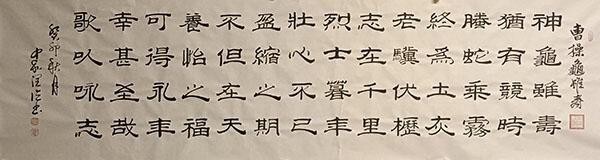 曹操龜雖壽
神龜雖壽
猶有競時
騰蛇乘霧
終爲土灰
老驥伏櫪
志在千里
烈士暮年
壯心不已
盈縮之期
不但在天
養怡之福
可得永年
幸甚至哉
歌以咏志
癸卯秋月